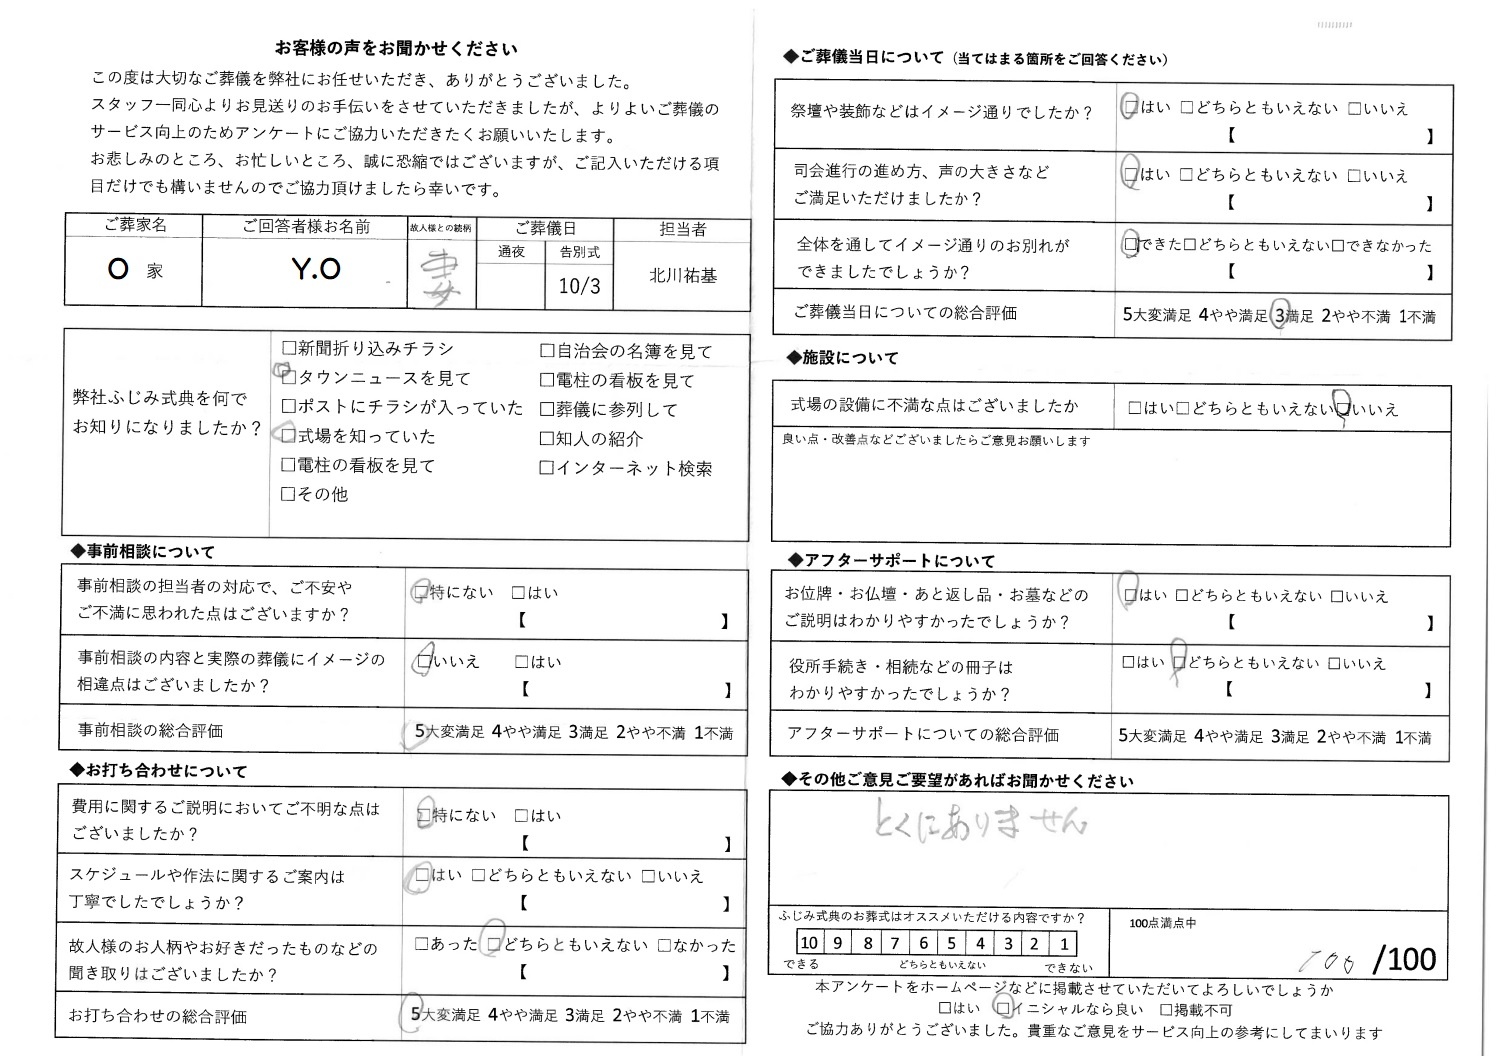 お客様の声をお聞かせください
この度は大切なご葬儀を弊社にお任せいただき、ありがとうございました。
スタッフ一同心よりお見送りのお手伝いをさせていただきましたが、よりよいご葬儀の
サービス向上のためアンケートにご協力いただきたくお願いいたします。
お悲しみのところ、お忙しいところ、誠に恐縮ではございますが、ご記入いただける項
目だけでも構いませんのでご協力頂けましたら幸いです。
ご葬家名 ご回答者様お名前 故人様との続柄 ご葬儀日 担当者
通夜 告別式
O 家 Y.O 妻 10/3 北川祐基
弊社ふじみ式典を何で
お知りになりましたか？
□新聞折り込みチラシ □自治会の名簿を見て
□タウンニュースを見て □電柱の看板を見て
□ポストにチラシが入っていた □葬儀に参列して
□式場を知っていた □知人の紹介
□電柱の看板を見て □インターネット検索
□その他
◆事前相談について
事前相談の担当者の対応で、ご不安や
ご不満に思われた点はございますか？
□特にない □はい
【 】
事前相談の内容と実際の葬儀にイメージの
相違点はございましたか？
□いいえ □はい
【 】
事前相談の総合評価 5大変満足 4やや満足 3満足 2やや不満 1不満
◆お打ち合わせについて
費用に関するご説明においてご不明な点は
ございましたか？
□特にない □はい
【 】
スケジュールや作法に関するご案内は
丁寧でしたでしょうか？
□はい □どちらともいえない □いいえ
【 】
故人様のお人柄やお好きだったものなどの
聞き取りはございましたか？
□あった □どちらともいえない □なかった
【 】
お打ち合わせの総合評価 5大変満足 4やや満足 3満足 2やや不満 1不満
◆ご葬儀当日について（当てはまる箇所をご回答ください）
祭壇や装飾などはイメージ通りでしたか？ □はい □どちらともいえない □いいえ
【 】
司会進行の進め方、声の大きさなど
ご満足いただけましたか？
□はい □どちらともいえない □いいえ
【 】
全体を通してイメージ通りのお別れが
できましたでしょうか？
□できた□どちらともいえない□できなかった
【 】
ご葬儀当日についての総合評価 5大変満足 4やや満足 3満足 2やや不満 1不満
◆施設について
式場の設備に不満な点はございましたか □はい□どちらともいえない□いいえ
良い点・改善点などございましたらご意見お願いします
◆アフターサポートについて
お位牌・お仏壇・あと返し品・お墓などの
ご説明はわかりやすかったでしょうか？
□はい □どちらともいえない □いいえ
【 】
役所手続き・相続などの冊子は
わかりやすかったでしょうか？
□はい □どちらともいえない □いいえ
【 】
アフターサポートについての総合評価 5大変満足 4やや満足 3満足 2やや不満 1不満
◆その他ご意見ご要望があればお聞かせください
とくにありません
ふじみ式典のお葬式はオススメいただける内容ですか？
10 9 8 7 6 5 4 3 2 1
できる どちらともいえない できない
100点満点中
100 /100
本アンケートをホームページなどに掲載させていただいてよろしいでしょうか
□はい □イニシャルなら良い □掲載不可
ご協力ありがとうございました。貴重なご意見をサービス向上の参考にしてまいります